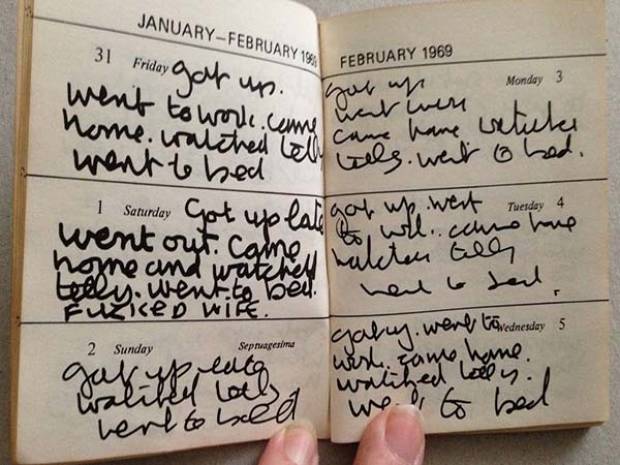 JANUARY–FEBRUARY 1969
31 Friday got up.
went to work. came
home. watched telly
went to bed
1 Saturday Got up late
went out. Came
home and watched
telly. went to bed.
FUCKED WIFE.
2 Sunday Septuagesima
got up late
watched telly
went to bed
FEBRUARY 1969
Monday 3
got up
went work
came home watched
telly. went to bed.
got up. went Tuesday 4
to work. came home
watched telly
went to bed.
got up. went to Wednesday 5
work. came home.
watched telly.
went to bed